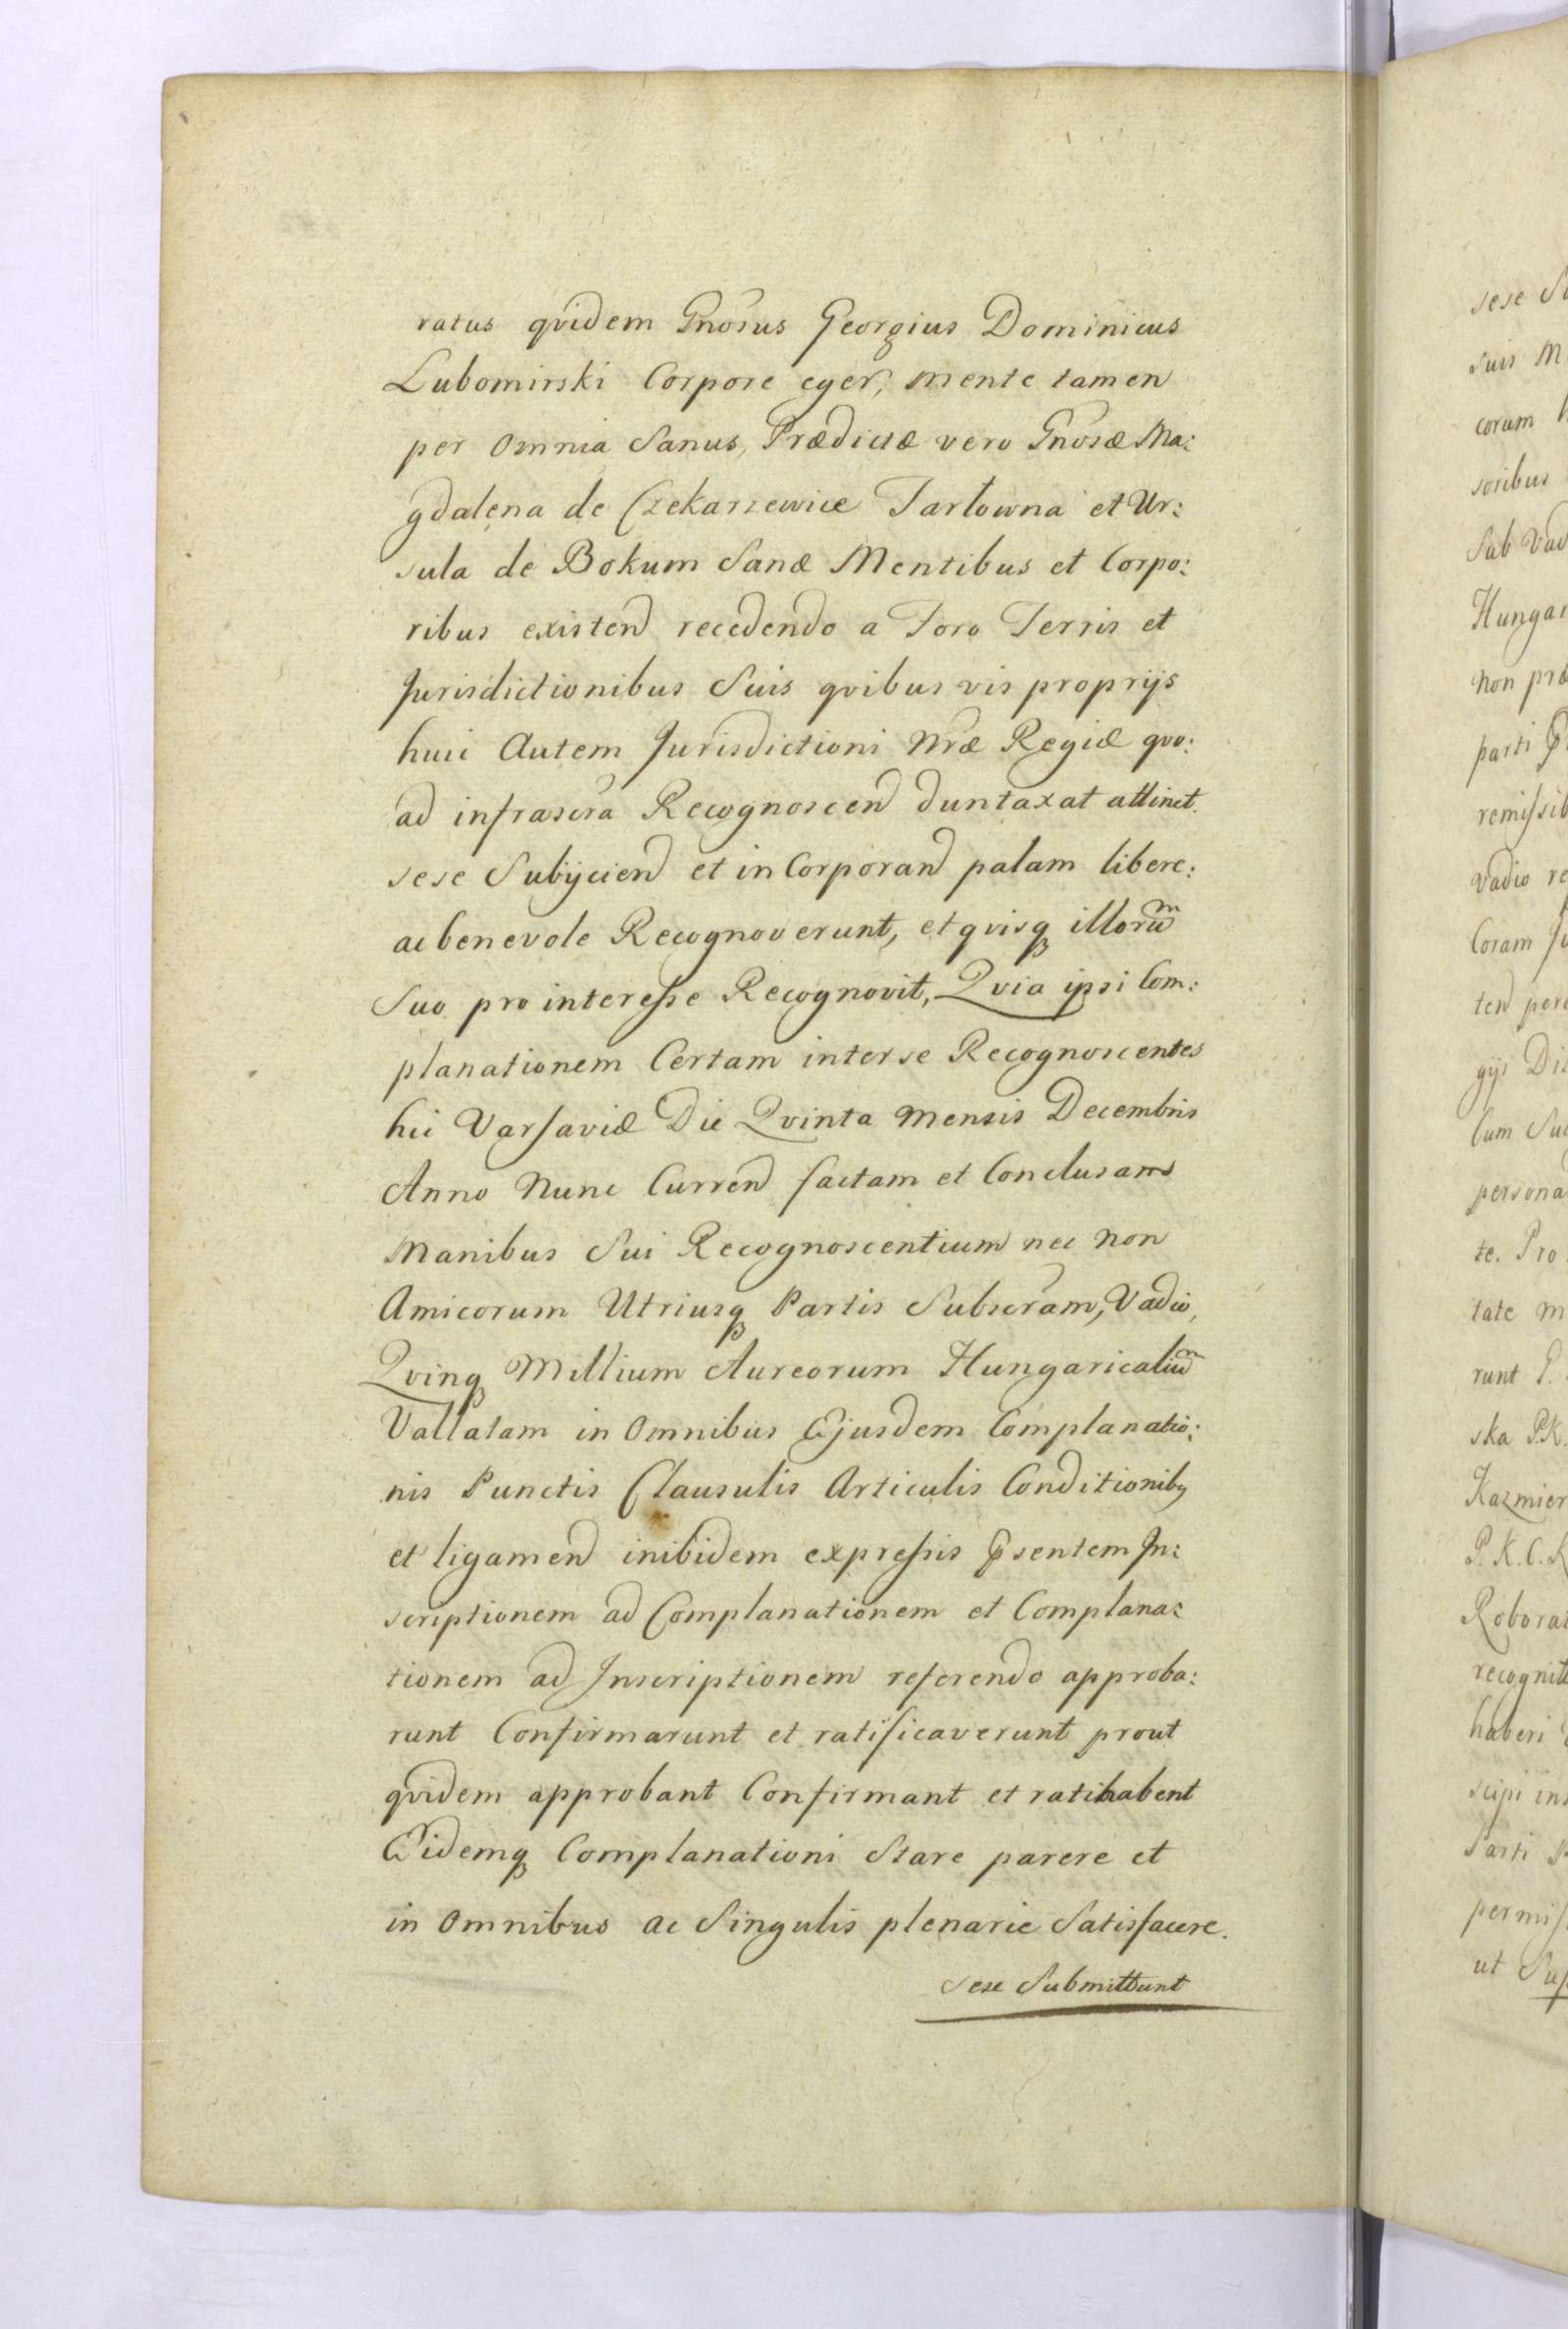 ratus qvidem Gnosus Georgius Dominicus
Lubomirski Corpore eger, mente tamen
per Omnia Sanus, Prædictæ vero Gnosæ Ma:
gdalena de Czekarzewice Tarłowna et Ur:
sula de Bokum Sanæ Mentibus et Corpo:
ribus existend recedendo a Foro Terris et
Jurisdictionibus Suis qvibus vis proprijs
huic Autem Jurisdictioni Nræ Regiæ qvo:
ad infrascra Recognoscend duntaxat attinet
sese Subijciend et in Corporand palam libere:
ac benevole Recognoverunt, et qvisq illorum
Suo pro interesse Recognovit, Qvia ipsi Com:
planationem Certam inter se Recognoscentes
hic Varsaviæ Die Qvinta Mensis Decembris
Anno Nunc Currend factam et Conclusam
Manibus Sui Recognoscentium nec non
Amicorum Utriusq Partis Subscram, Vadio,
Qvinq Millium Aureorum Hungaricalium
Vallatam in Omnibus Ejusdem Complanatio:
nis Punctis Clausulis Articulis Conditionibq
et ligamend inibidem expressis Psentem In:
scriptionem ad Complanationem et Complana:
tionem ad Inscriptionem referendo approba:
runt Confirmarunt et ratificaverunt prout
qvidem approbant Confirmant et ratihabent
Eidemq Complanationi Stare parere et
in Omnibus ac Singulis plenarie Satisfacere.
Sese Submittunt
sese
suis M
coram
soribus
Sub Vad
Hungar
non præ
parti
remissib
Vadio re
Coram Ju
tend
gijs
Cum
persona
te. Pro
tate m
runt
ska P.K.
Kazmier
P. K. C.
Roborat
recognit
haberi
scipi in
Parti
permiss
ut